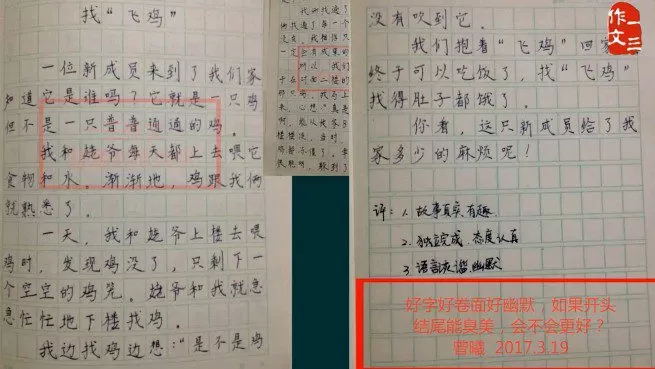 找“飞鸡”
一位新成员来到了我们家
知道它是谁吗？它就是一只鸡
但不是一只普普通通的鸡。
我和姥爷每天都上去喂它
食物和水。渐渐地，鸡跟我俩
就熟悉了。
一天，我和姥爷上楼去喂
鸡时，发现鸡没了，只剩下一
个空空的鸡笼。姥爷和我就急
急忙忙地下楼找鸡。
我边找鸡边想：“是不是鸡
一定会有成果的
所以，我们
于在对面二楼的
没有吹到它。
我们抱着“飞鸡”回家
终于可以吃饭了，找“飞鸡”
找得肚子都饿了。
你看，这只新成员给了我
家多少的麻烦呢！
评：1.故事真实有趣
2.独立完成，态度认真
3.语言诙谐幽默
好字好卷面好幽默，如果开头
结尾能臭美，会不会更好？
曹曦 2017.3.19
一二三
作文